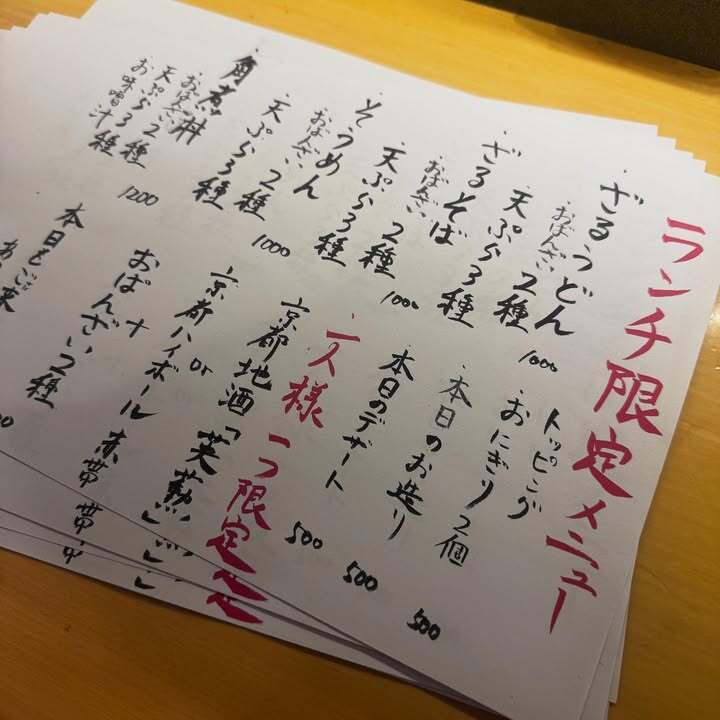 ランチ限定メニュー
・ざるうどん
おばんざい2種
天ぷら3種
1000
・ざるそば
おばんざい2種
天ぷら3種
1000
・そうめん
おばんざい2種
天ぷら3種
1000
・角煮丼
・おばんざい2種
天ぷら3種
お味噌汁
1200
トッピング
おにぎり2個
500
・本日のお造り
500
・本日のデザート
500
・一人様一つ限定
京都地酒「英勲」
or
京都ハイボール
+
おばんざい2種
本日もご来